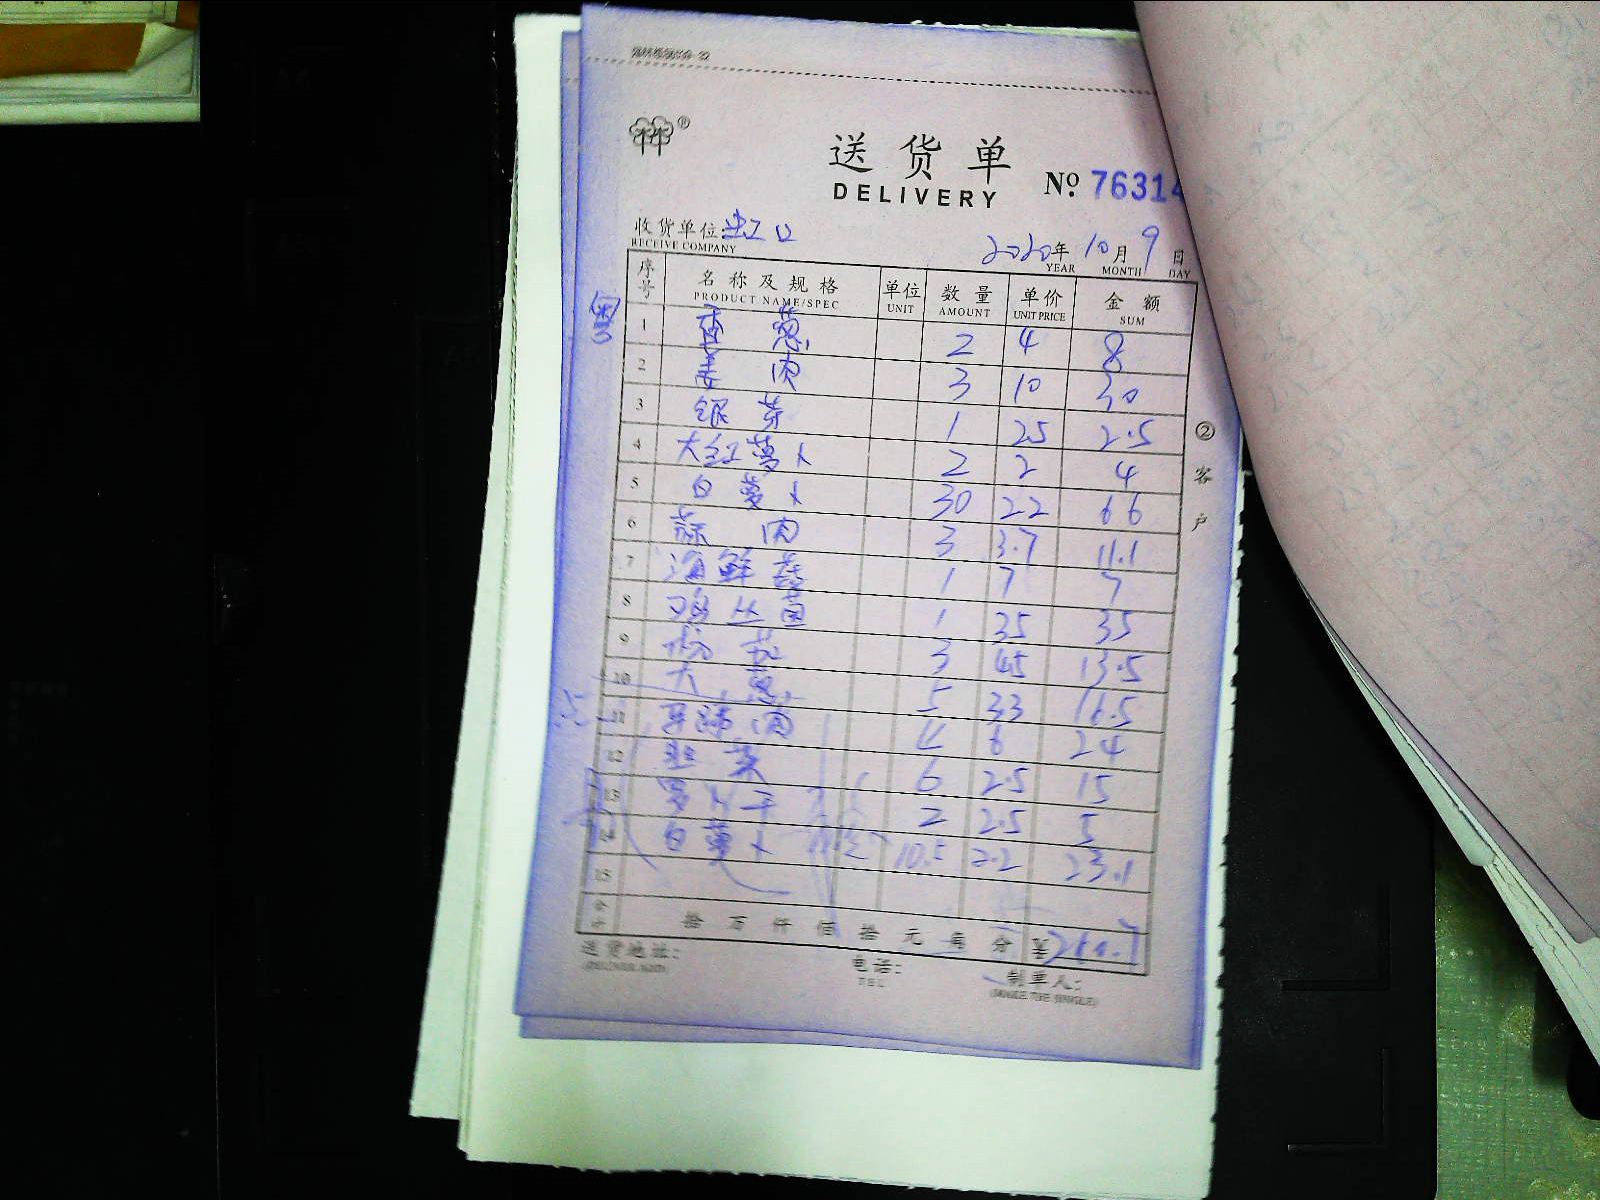 送货单
DELIVERY
№ 76314
收货单位: 虹口
RECEIVE COMPANY
2020年 10月 9日
YEAR MONTH DAY
序号 名称及规格 单位 数量 单价 金额
PRODUCT NAME/SPEC UNIT AMOUNT UNIT PRICE SUM
1 香葱 2 4 8
2 姜肉 3 10 30
3 银芽 1 25 2.5
4 大红萝卜 2 2 4
5 白萝卜 30 22 66
6 蒜肉 3 3.7 11.1
7 海鲜菇 1 7 7
8 鸡丛菌 1 35 35
9 3 45 13.5
10 大葱 5 33 16.5
11 4 6 24
12 韭菜 6 2.5 15
13 萝卜干 2 2.5 5
14 白萝卜 10.5 2.2 23.1
15
合计 拾万仟佰拾元角分 ¥
送货地址:
电话:
TEL
制单人:
②客户